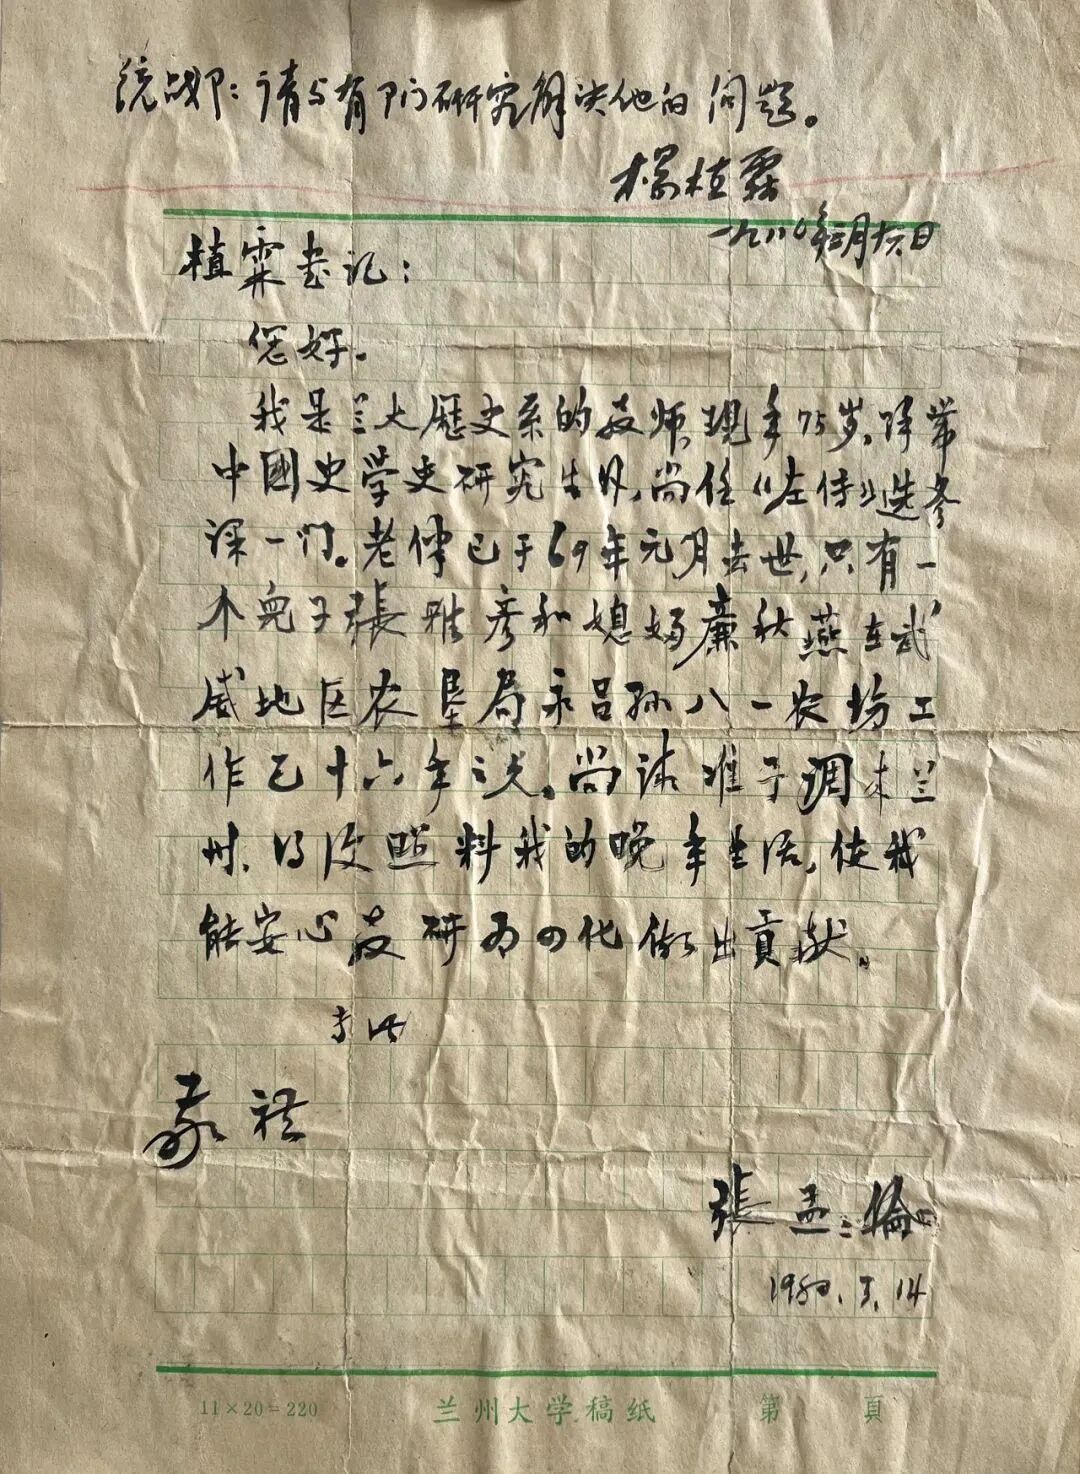 统战部：请与有部门研究解决他的问题。
杨植霖
一九八〇年三月十六日
植霖书记：
您好。
我是兰大歷史系的教师，现年75岁，除带
中國史学史研究生外，尚任《左传》选参
课一门。老伴已于69年元月去世，只有一
个兒子張雅彦和媳妇廉秋燕在武
威地区农垦局永昌孙八一农场工
作已十六年之久。尚请准予调来兰
州，以及照料我的晚年生活，使我
能安心教研为四化做出貢献。
专此
敬礼
張孟伦
1980.3.14
11×20=220 兰州大学稿纸 第 頁